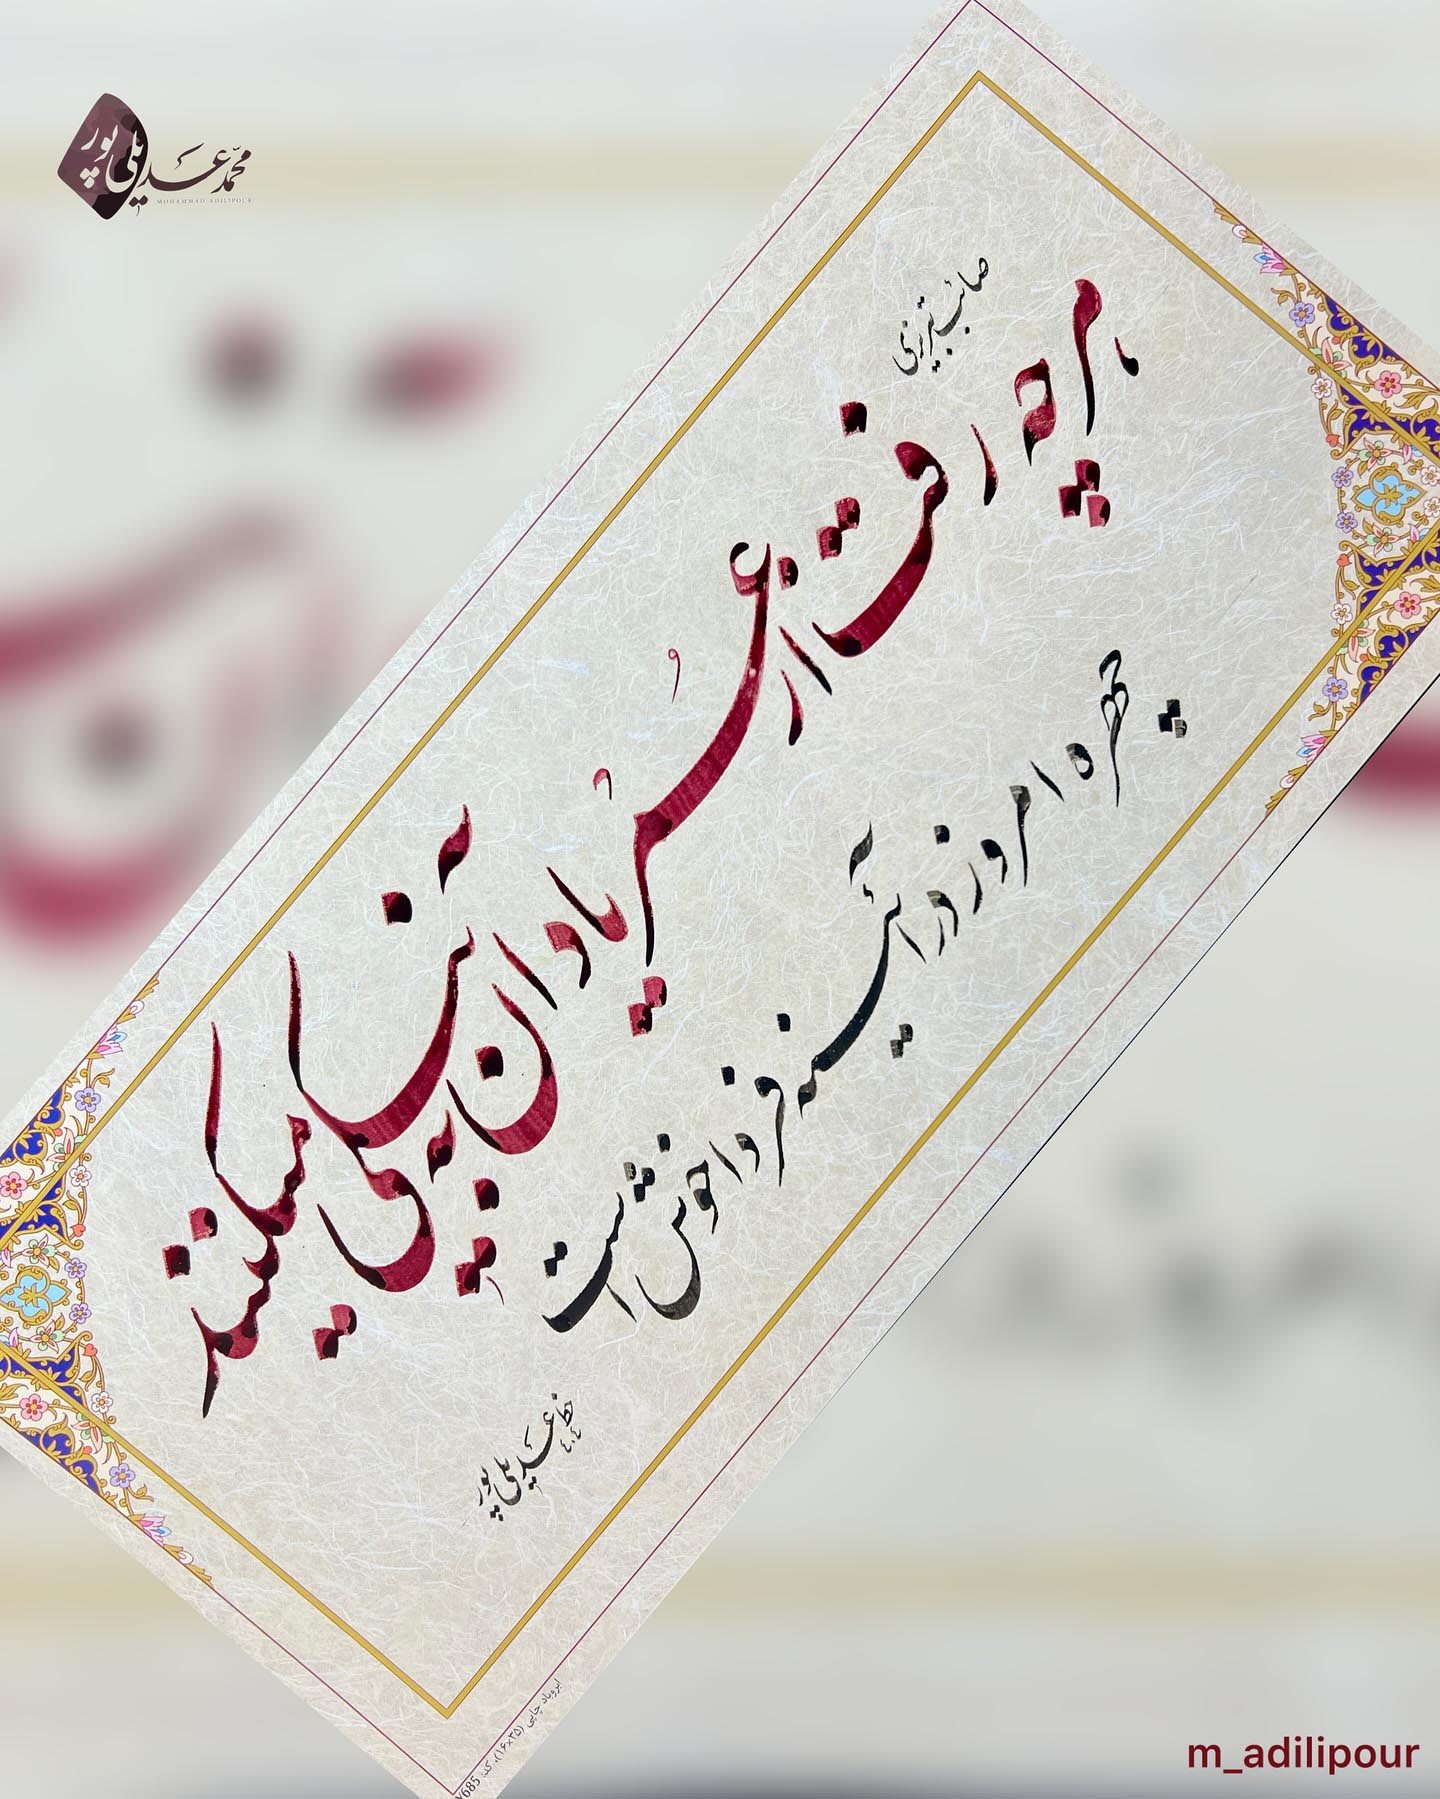 محمد عدیلی‌پور
MOHAMMAD ADILIPOUR
صائب تبریزی
هرچه رفت از عمر یاد آن به نیکی میکنند
چهره امروز در آئینه فردا خوش است
خط عدیلی‌پور
٤٠٤
ابروباد چاپی (۱۶×۳۵)، کد: 7685
m_adilipour